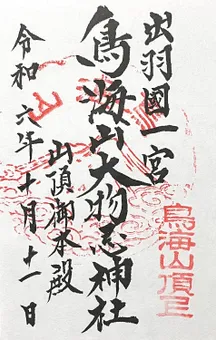 出羽國一宮
鳥海山頂上
鳥海山大物忌神社
山頂御本殿
令和六年十月十一日
山